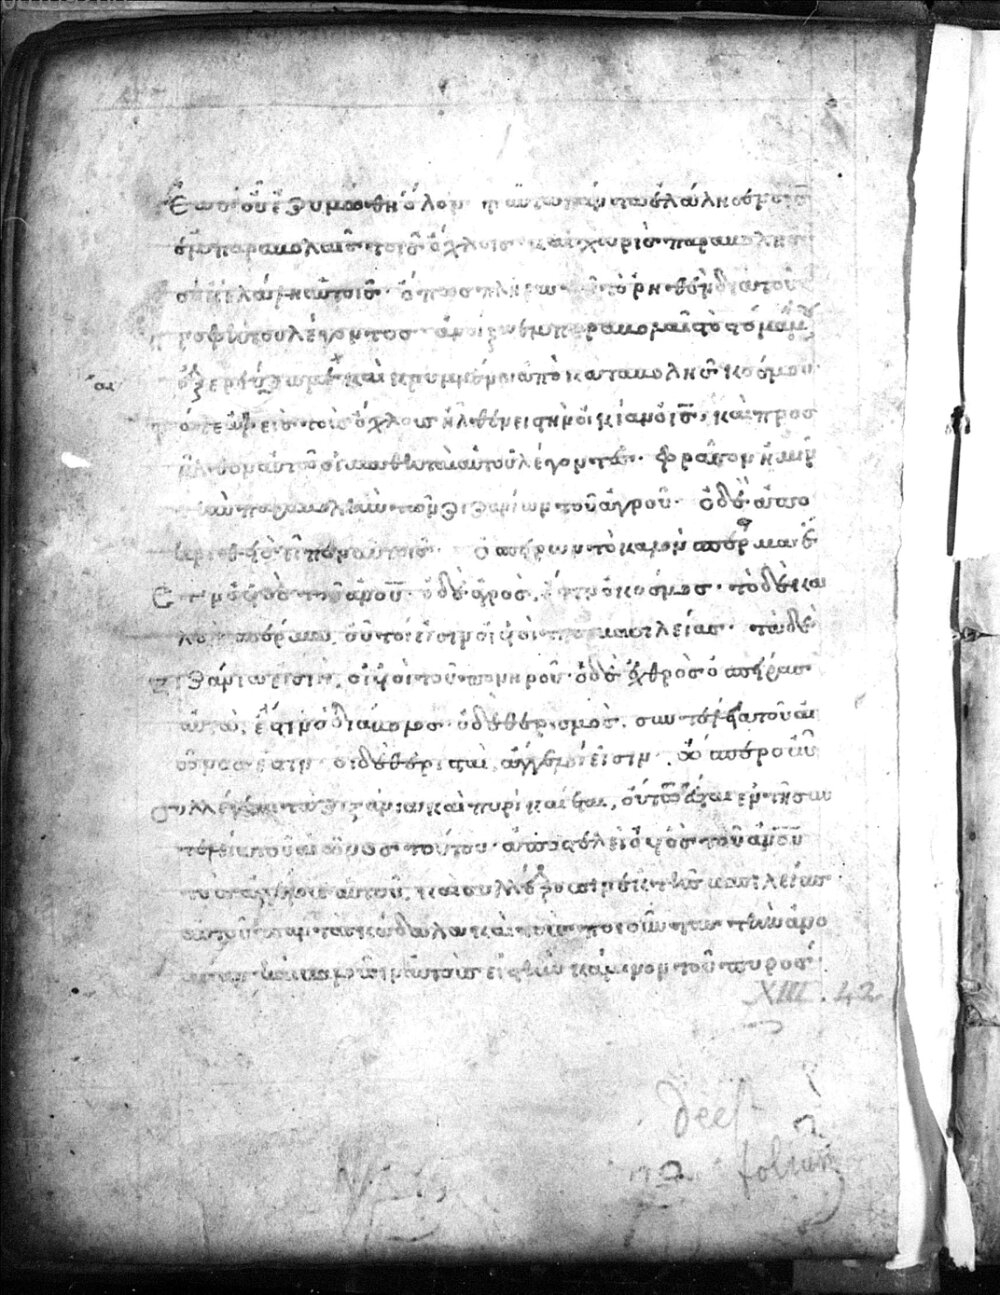 ἕως οὗ ἐζυμώθη ὅλον ταῦτα πάντα ἐλάλησεν ὁ ἰς
ἐν παραβολαῖς τοῖς ὄχλοις καὶ χωρὶς παραβολῆς
ἐλάλει αὐτοῖς ὅπως πληρωθῆ τὸ ῥηθὲν διὰ τοῦ
προφήτου λέγοντος ἀνοίξω ἐν παραβολαῖς τὸ στόμα μου
ἐρεύξομαι κεκρυμμένα ἀπὸ καταβολῆς κόσμου
τότε ἀφεὶς τοὺς ὄχλους ἦλθεν εἰς τὴν οἰκίαν ὁ ἰς καὶ προσ
ῆλθον αὐτῶ οἱ μαθηταὶ αὐτοῦ λέγοντες φράσον ἡμῖν
τὴν παραβολὴν τῶν ζιζανίων τοῦ ἀγροῦ ὁ δὲ ἀπο
κριθεὶς εἶπεν αὐτοῖς ὁ σπείρων τὸ καλὸν σπέρμα
ἐστὶν ὁ υἱὸς τοῦ ανου ὁ δὲ ἀγρός ἐστιν ὁ κόσμος τὸ δὲ κα
λὸν σπέρμα οὗτοί εἰσιν οἱ υἱοὶ τῆς βασιλείας τὰ δὲ
ζιζάνια εἰσὶν οἱ υἱοὶ τοῦ πονηροῦ ὁ δὲ ἐχθρὸς ὁ σπείρας
αὐτά ἐστιν ὁ διάβολος ὁ δὲ θερισμὸς συντέλεια τοῦ αἰ
ῶνος ἐστιν οἱ δὲ θερισταὶ ἄγγελοί εἰσιν ὥσπερ οὖν
συλλέγεται τὰ ζιζάνια καὶ πυρὶ καίεται οὕτως ἔσται ἐν τῆ συν
τελεία τοῦ αἰῶνος τούτου ἀποστελεῖ ὁ υἱὸς τοῦ ανου
τοὺς ἀγγέλους αὐτοῦ καὶ συλλέξουσιν ἐκ τῆς βασιλείας
αὐτοῦ πάντα τὰ σκάνδαλα καὶ τοὺς ποιοῦντας τὴν ἀνο
μίαν καὶ βαλοῦσιν αὐτοὺς εἰς τὴν κάμινον τοῦ πυρός
XIII. 42
deest
folium